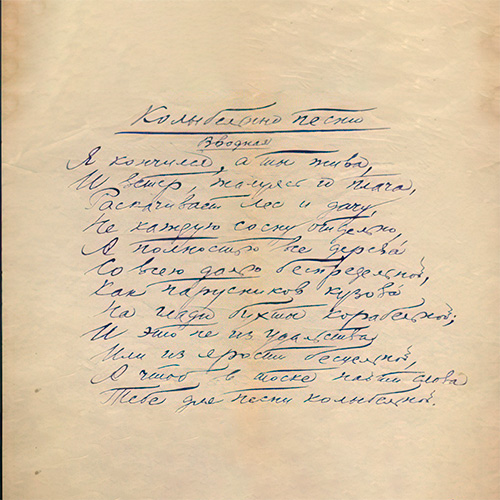 Колыбельные песни
Вводная
Я кончился, а ты жива,
И ветер, жалуясь и плача,
Раскачивает лес и дачу,
Не каждую сосну отдельно,
А полностью все дерева
Со всею далью беспредельной,
Как парусников кузова
На глади бухты корабельной,
И это не из удальства
Или из ярости бесцельной,
А чтоб в тоске найти слова
Тебе для песни колыбельной.